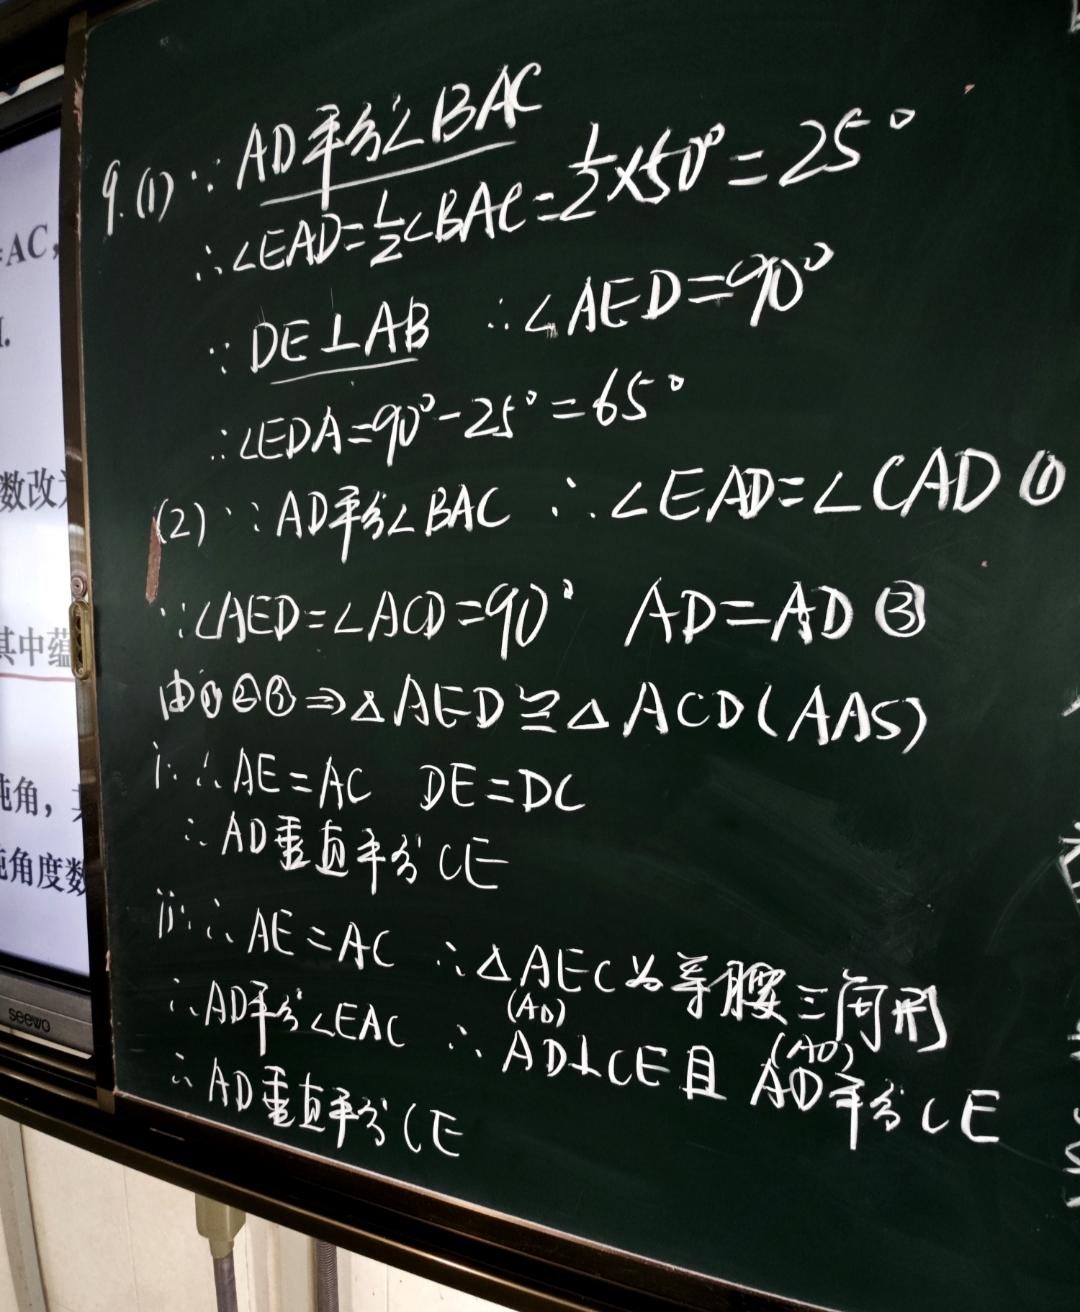 =AC,
数改为
其中蕴
钝角,
钝角度数
seewo
9.(1) ∵ AD平分∠BAC
∴∠EAD=½∠BAC=½×50°=25°
∵ DE⊥AB ∴∠AED=90°
∴∠EDA=90°-25°=65°
(2) ∵ AD平分∠BAC ∴ ∠EAD=∠CAD ①
∵∠AED=∠ACD=90° AD=AD ③
由①②③⇒△AED≌△ACD(AAS)
i: ∴AE=AC DE=DC
∴AD垂直平分CE
ii: ∴AE=AC ∴△AEC为等腰三角形
∴AD平分∠EAC ∴(AD)AD⊥CE且(AD)AD平分CE
∴AD垂直平分CE